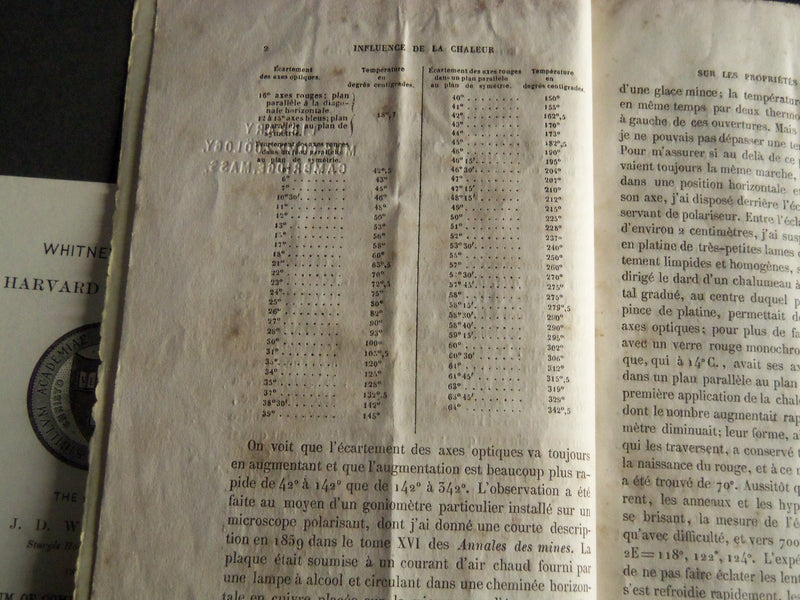 WHITNE
HARVARD
THE
J. D. W
2
INFLUENCE DE LA CHALEUR
Écartement
des axes optiques.
Température
en
degrés centigrades.
16° axes rouges; plan
parallèle à la diago-
nale horizontale
12 à 13° axes bleus; plan
parallèle au plan de
symétrie.
Écartement des axes rouges
dans un plan parallèle
au plan de symétrie.
42°,5
6° 43°
7° 45°
10°30′ 46°
11° 48°
12° 50°
13° 53°
15° 56°
17° 58°
18° 60°
21° 65°,5
22° 70°
23° 72°,5
24° 75°
25° 80°
26° 82°
27° 90°
28° 95°
30° 100°
31° 105°,5
120°
34° 125°
35° 128°
37° 132°,5
38°30′ 142°
39° 145°
Écartement des axes rouges
dans un plan parallèle
au plan de symétrie.
Température
en
degrés centigrades.
40° 150°
41° 155°
42° 162°,5
43° 170°
44° 173°
45° 182°,5
46° 190°
46°15′ 195°
46°30′ 204°
47° 207°
47°15′ 210°
48°15′ 212°
49° 215°
50° 225°
51° 228°
52° 237°
53°30′ 240°
55° 250°
57° 260°
270°
57°45′ 275°
58° 275°
58°15′ 279°,5
58°30′ 290°
58°40′ 290°
59°15′ 295°
60° 302°
60°30′ 306°
61° 312°
61°45′ 315°,5
63° 319°
63°45′ 329°
64° 342°,5
On voit que l'écartement des axes optiques va toujours
en augmentant et que l'augmentation est beaucoup plus ra-
pide de 42° à 142° que de 142° à 342°. L'observation a été
faite au moyen d'un goniomètre particulier installé sur un
microscope polarisant, dont j'ai donné une courte descrip-
tion en 1859 dans le tome XVI des Annales des mines. La
plaque était soumise à un courant d'air chaud fourni par
une lampe à alcool et circulant dans une cheminée horizon-
tale en cuivre
SUR LES PROPRIÉTÉS
d'une glace mince; la températur
en même temps par deux thermo
à gauche de ces ouvertures. Mais
je ne pouvais pas dépasser une te
Pour m'assurer si au delà de ce
vaient toujours la même marche,
dans une position horizontale e
son axe, j'ai disposé derrière l'éc
servant de polariseur. Entre l'écl
d'environ 2 centimètres, j'ai sus
en platine de très-petites lames
tement limpides et homogènes,
dirigé le dard d'un chalumeau à
tal gradué, au centre duquel p
pince de platine, permettait d
axes optiques; pour plus de fa
avec un verre rouge monochro
que, qui à 14° C., avait ses ax
dans un plan parallèle au plan
première application de la chal
dont le nombre augmentait rap
mètre diminuait; leur forme, a
qui les traversent, a conservé t
la naissance du rouge, et à ce
a été trouvé de 70°. Aussitôt q
rent, les anneaux et les hyp
se brisant, la mesure de l'é
qu'avec difficulté, et vers 700
2E=118°, 122°, 124°. L'expé
de ne pas faire éclater les lent
s'est refroidie rapidement, le